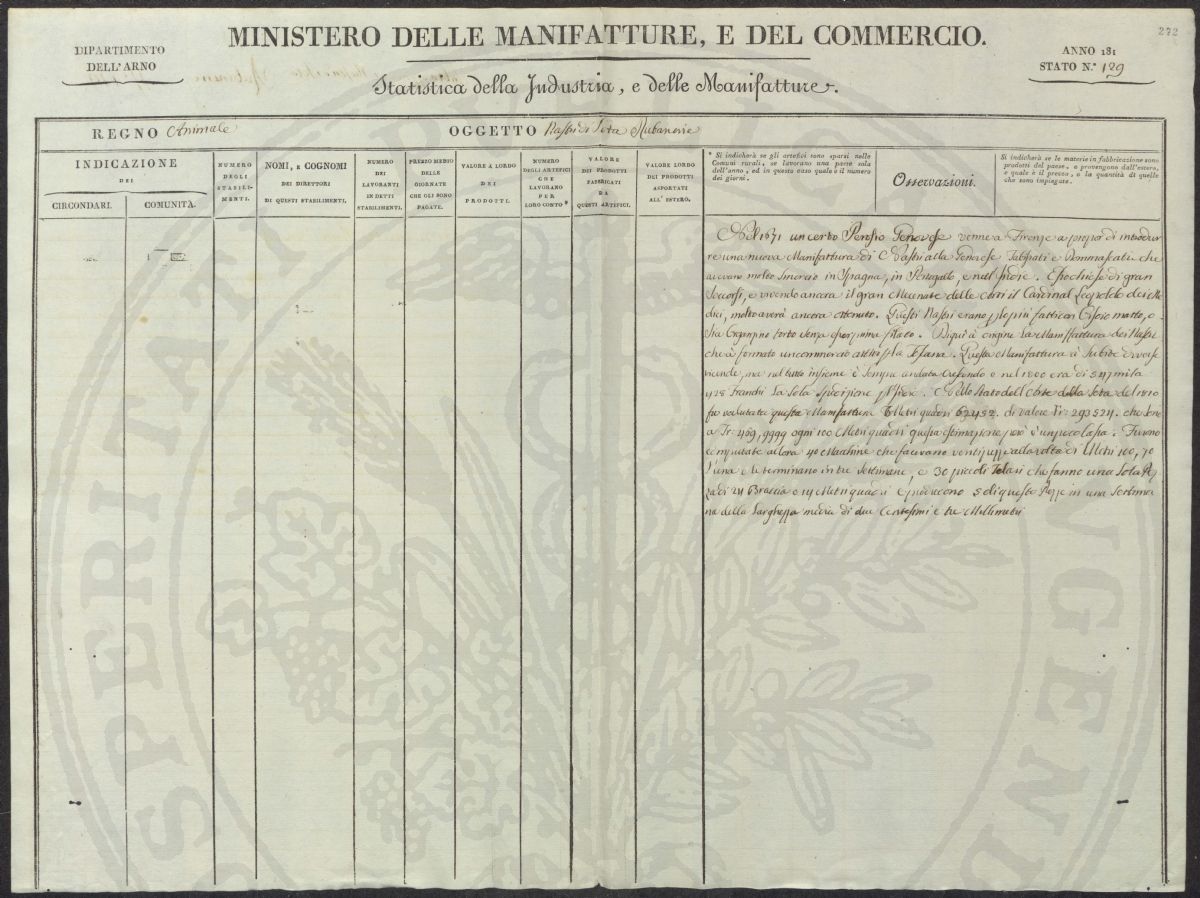 272
DIPARTIMENTO
DELL'ARNO
MINISTERO DELLE MANIFATTURE, E DEL COMMERCIO.
ANNO 181
STATO N.° 129
Statistica della Industria, e delle Manifatture.
REGNO Animale
OGGETTO Nastri di Seta Rubanerie
INDICAZIONE
DEI
CIRCONDARI.
COMUNITÀ.
NUMERO
DEGLI
STABILI-
MENTI.
NOMI, E COGNOMI
DEI DIRETTORI
DI QUESTI STABILIMENTI.
NUMERO
DEI
LAVORANTI
IN DETTI
STABILIMENTI.
PREZZO MEDIO
DELLE
GIORNATE
CHE GLI SONO
PAGATE.
VALORE A LORDO
DEI
PRODOTTI.
NUMERO
DEGLI ARTEFICI
CHE
LAVORANO
PER
LORO CONTO*
VALORE
DEI PRODOTTI
FABBRICATI
DA
QUESTI ARTEFICI.
VALORE LORDO
DEI PRODOTTI
ASPORTATI
ALL'ESTERO.
* Si indicherà se gli artefici sono sparsi nelle
Comuni rurali, se lavorano una parte sola
dell'anno, ed in questo caso quale è il numero
dei giorni.
Osservazioni.
Si indicherà se le materie in fabbricazione sono
prodotti del paese, o provengono dall'estero,
e quale è il prezzo, o la quantità di quelle
che sono impiegate.
Nel 1671 un certo Genovese venne a Firenze a propor di introdur
re una nuova Manifattura di Nastri alla Genovese e Dommascati che
avevano molto smercio in Ispagna, in Portogallo, e nell'Indie. Esso chiese di gran
Soccorsi, e vivendo ancora il gran Mecenate delle arti il Cardinal Leopoldo dei Me
dici, molto averà ancora ottenuto. Questi Nastri erano fatti con
Sia Organzino torto senza. Di qui à origine la Manifattura dei Nastri
che à formato un commercio la Toscana. Questa Manifattura à subite diverse
vicende, ma nel tutto insieme è sempre andata crescendo e nel 1800 era di 547 mila
428 Franchi la sola spedizione. Nello Stato dell'Arte della Seta del 1810
fu valutata questa Manifattura Metri quadri 62452. di valore Fr: 293524. che sono
a Fr: 469,9999 ogni 100 Metri quadri questa estimazione però è un poco bassa. Furono
computate allora 40 Macchine che facevano venti pezze alla volta di Metri 100,70
l'una e le terminano in tre Settimane, e 30 piccoli Telai che fanno una sola Pez
za di 24 Braccia o 14 Metri quadri e producono 5 di queste Pezze in una Settima
na della larghezza media di due Centesimi e tre Millimetri
SPERITAT